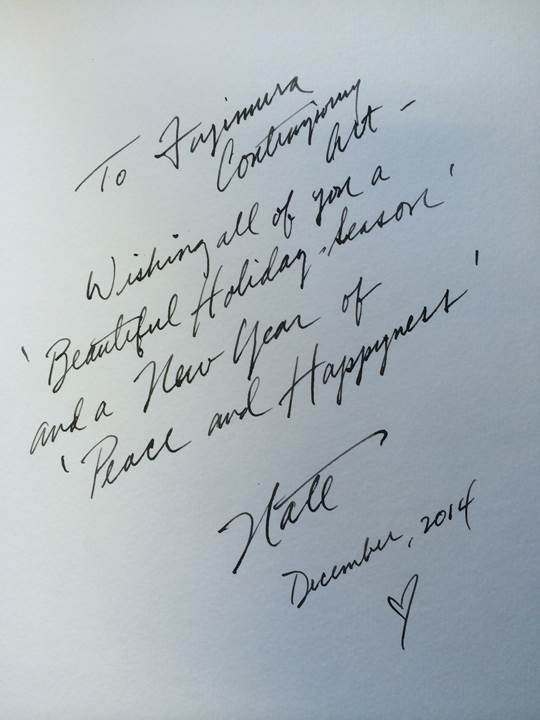 To Fujimura
Contemporary
Art -
Wishing all of you a
'Beautiful Holiday Season'
and a New Year of
'Peace and Happyness'
December, 2014